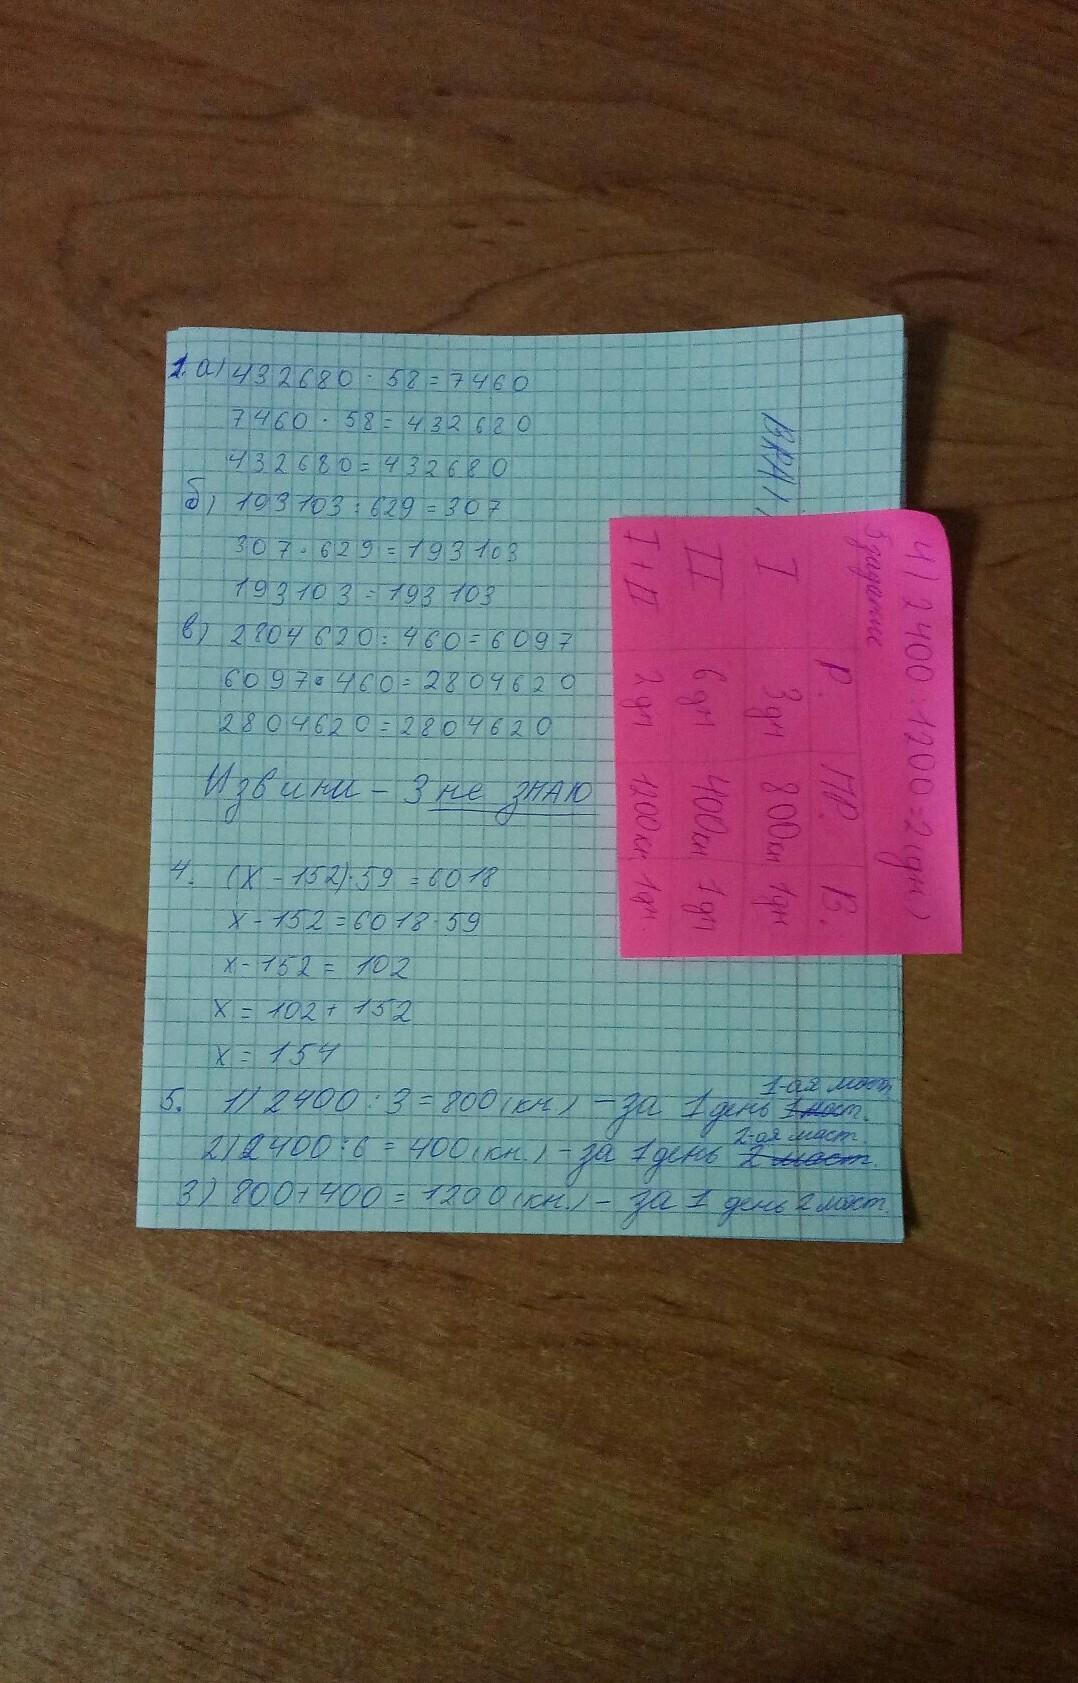 1. а) 432680 : 58 = 7460
7460 · 58 = 432680
432680 = 432680
б) 193103 : 629 = 307
307 · 629 = 193103
193103 = 193103
в) 2804620 : 460 = 6097
6097 · 460 = 2804620
2804620 = 2804620
Извини - 3 не знаю
4. (х - 152) · 59 = 6018
х - 152 = 6018 : 59
х - 152 = 102
х = 102 + 152
х = 154
5. 1) 2400 : 3 = 800 (кн.) - за 1 день 1-ая маст.
2) 2400 : 6 = 400 (кн.) - за 1 день 2-ая маст.
3) 800 + 400 = 1200 (кн.) - за 1 день 2 маст.
4) 2400 : 1200 = 2 (дн)
5 задание
Р. ПР. В.
I 3 дн 800 кн 1 дн
II 6 дн 400 кн 1 дн
I + II 2 дн 1200 кн 1 дн.